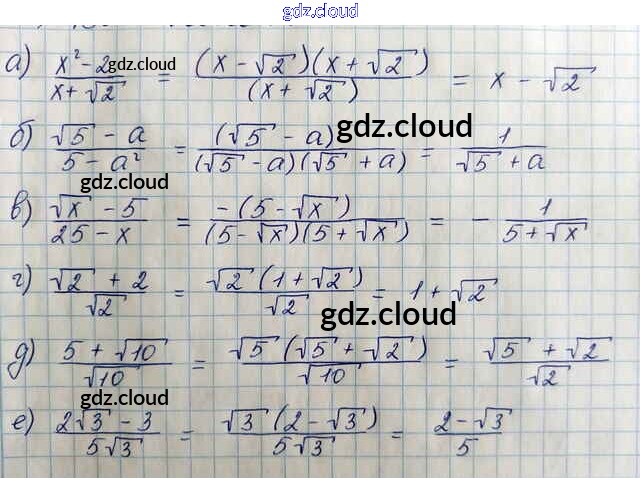 gdz.cloud
а) (x² - 2)/(x + √2) = ((x - √2)(x + √2))/((x + √2)) = x - √2
gdz.cloud
б) (√5 - a)/(5 - a²) = ((√5 - a))/((√5 - a)(√5 + a)) = 1/(√5 + a)
gdz.cloud
gdz.cloud
в) (√x - 5)/(25 - x) = (-(5 - √x))/((5 - √x)(5 + √x)) = - 1/(5 + √x)
gdz.cloud
г) (√2 + 2)/√2 = (√2 (1 + √2))/√2 = 1 + √2
gdz.cloud
д) (5 + √10)/√10 = (√5 (√5 + √2))/√10 = (√5 + √2)/√2
gdz.cloud
gdz.cloud
е) (2√3 - 3)/(5√3) = (√3 (2 - √3))/(5√3) = (2 - √3)/5
gdz.cloud